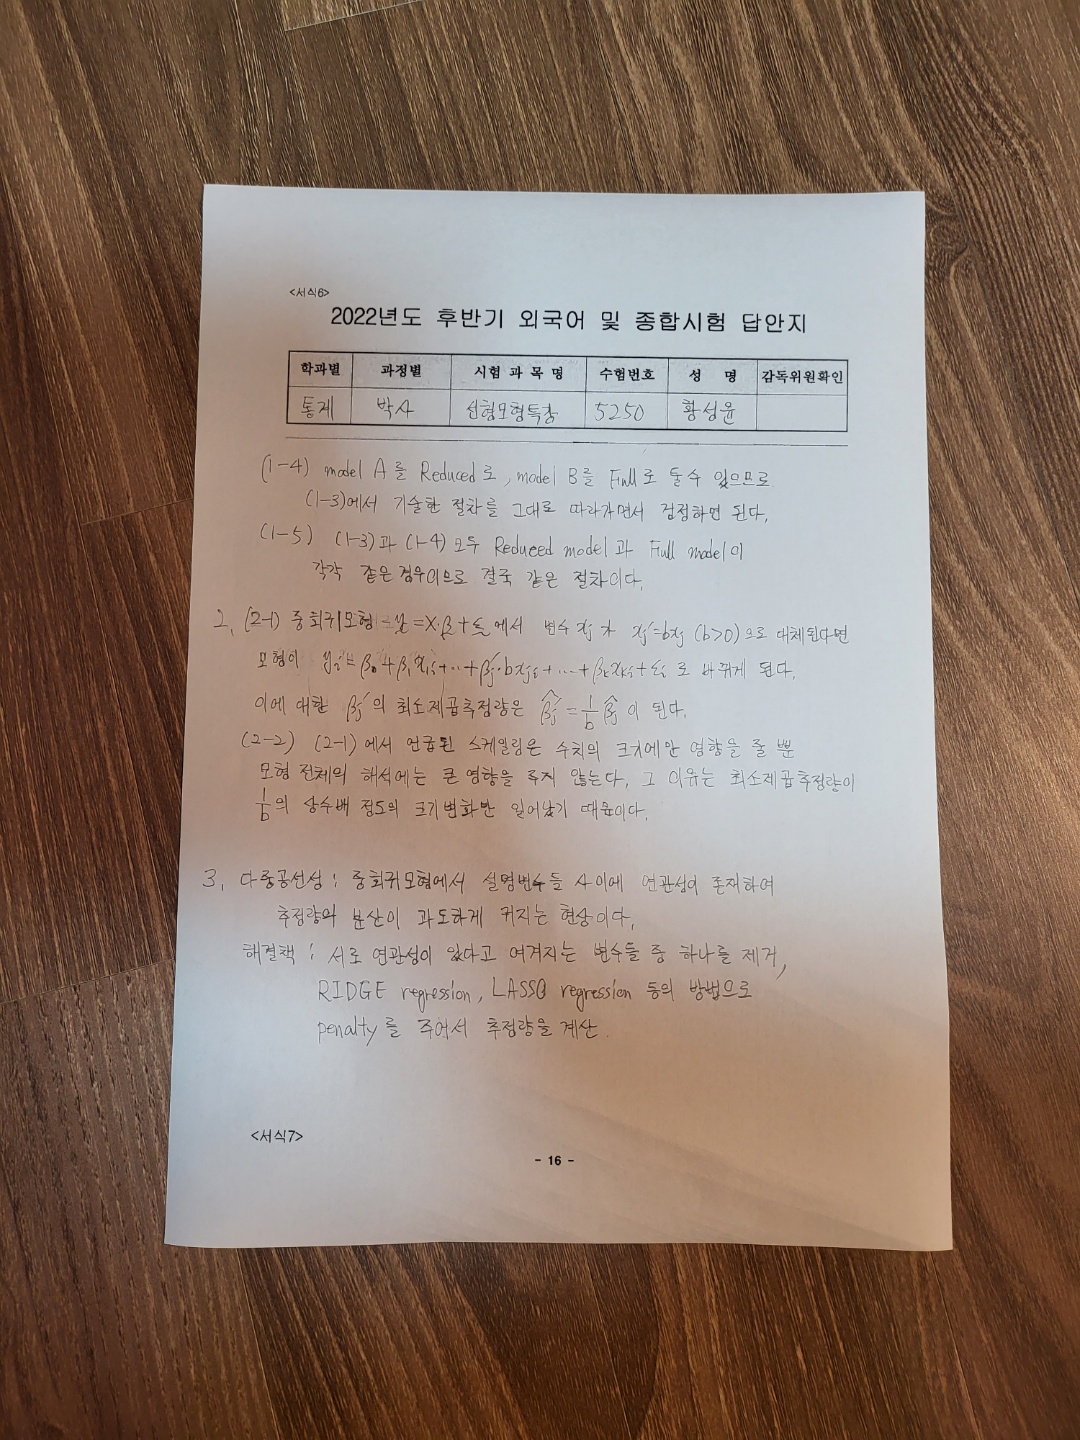 <서식6>
2022년도 후반기 외국어 및 종합시험 답안지
학과별 과정별 시험 과 목 명 수험번호 성 명 감독위원확인
통계 박사 선형모형특강 5250 황성윤
(1-4) model A를 Reduced로, model B를 Full로 둘 수 있으므로
(1-3)에서 기술한 절차를 그대로 따라가면서 검정하면 된다.
(1-5) (1-3)과 (1-4) 모두 Reduced model과 Full model이
각각 같은 경우이므로 결국 같은 절차이다.
2. (2-1) 중회귀모형 y = X·β + ε 에서 변수 xj 가 xj' = bxj (b>0)으로 대체된다면
모형이 yi = β0 + β1x1i + ... + βj'·bxji + ... + βkxki + εi 로 바뀌게 된다.
이에 대한 βj'의 최소제곱추정량은 β̂j' = 1/b β̂j 이 된다.
(2-2) (2-1)에서 언급된 스케일링은 수치의 크기에만 영향을 줄 뿐
모형 전체의 해석에는 큰 영향을 주지 않는다. 그 이유는 최소제곱추정량이
1/b의 상수배 정도의 크기변화만 일어났기 때문이다.
3. 다중공선성 : 중회귀모형에서 설명변수들 사이에 연관성이 존재하여
추정량의 분산이 과도하게 커지는 현상이다.
해결책 : 서로 연관성이 있다고 여겨지는 변수들 중 하나를 제거,
RIDGE regression, LASSO regression 등의 방법으로
penalty를 주어서 추정량을 계산.
<서식7>
- 16 -